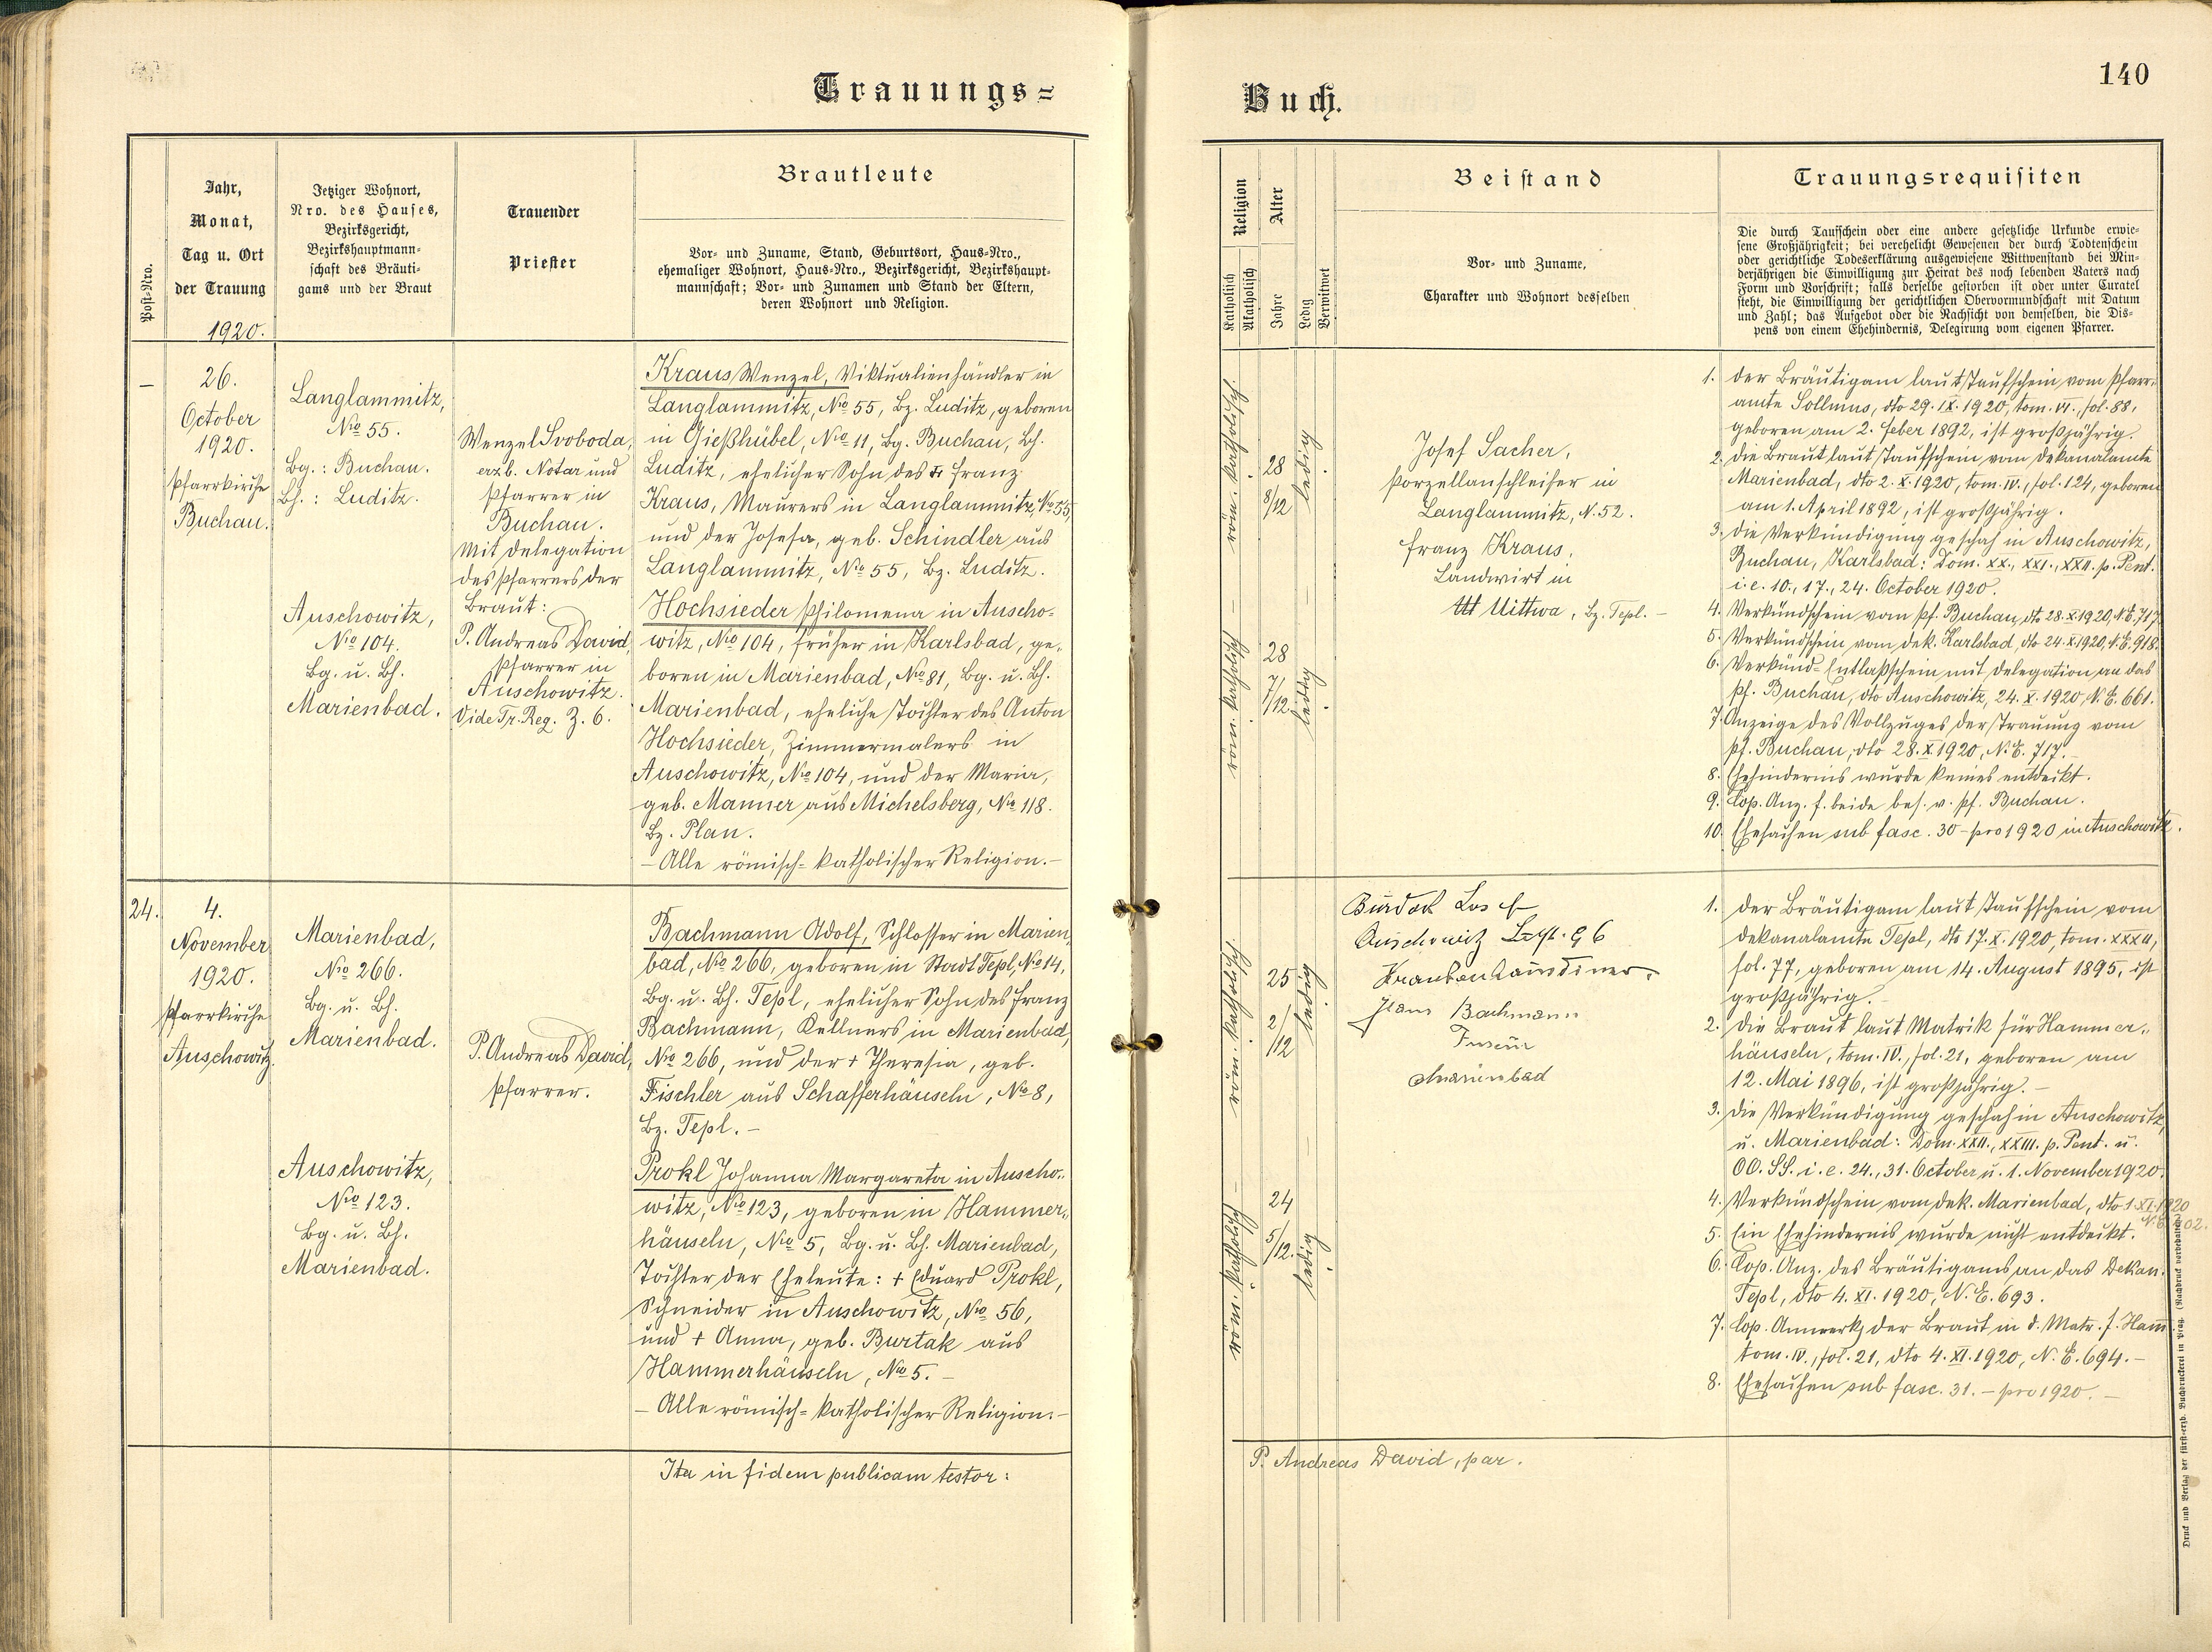 Trauungs=
Buch.
140
Post-Nro.
Jahr,
Monat,
Tag u. Ort
der Trauung
1920.
Jetziger Wohnort,
Nro. des Hauses,
Bezirksgericht,
Bezirkshauptmann-
schaft des Bräuti-
gams und der Braut
Trauender
Priester
Brautleute
Vor- und Zuname, Stand, Geburtsort, Haus-Nro.,
ehemaliger Wohnort, Haus-Nro., Bezirksgericht, Bezirkshaupt-
mannschaft; Vor- und Zunamen und Stand der Eltern,
deren Wohnort und Religion.
Religion
Katholisch
Akatholisch
Alter
Jahre
Ledig
Verwitwet
Beistand
Vor- und Zuname,
Charakter und Wohnort desselben
Trauungsrequisiten
Die durch Taufschein oder eine andere gesetzliche Urkunde erwie-
sene Großjährigkeit; bei verehelicht Gewesenen der durch Todtenschein
oder gerichtliche Todeserklärung ausgewiesene Wittwenstand bei Min-
derjährigen die Einwilligung zur Heirat des noch lebenden Vaters nach
Form und Vorschrift; falls derselbe gestorben ist oder unter Curatel
steht, die Einwilligung der gerichtlichen Obervormundschaft mit Datum
und Zahl; das Aufgebot oder die Nachsicht von demselben, die Dis-
pens von einem Ehehindernis, Delegirung vom eigenen Pfarrer.
—
26.
October
1920.
Pfarrkirche
Buchau.
Langlammitz,
No 55.
Bg.: Buchau.
Bh.: Luditz.
Auschowitz,
No 104.
Bg. u. Bh.
Marienbad.
Wenzel Svoboda,
erzb. Notar und
Pfarrer in
Buchau.
Mit Delegation
des Pfarrers der
Braut:
P. Andreas David,
Pfarrer in
Auschowitz.
Vide Tr. Reg. Z. 6.
Kraus Wenzel, Viktualienhändler in
Langlammitz, No 55, Bz. Luditz, geboren
in Gießhübel, No 11, Bg. Buchau, Bh.
Luditz, ehelicher Sohn des Franz
Kraus, Maurers in Langlammitz, No 55,
und der Josefa, geb. Schindler aus
Langlammitz, No 55, Bz. Luditz.
Hochsieder Philomena in Auscho-
witz, No 104, früher in Karlsbad, ge-
boren in Marienbad, No 81, Bg. u. Bh.
Marienbad, eheliche Tochter des Anton
Hochsieder, Zimmermalers in
Auschowitz, No 104, und der Maria,
geb. Manner aus Michelsberg, No 118.
Bz. Plan.
— Alle römisch-katholischer Religion. —
röm. katholisch.
28
8/12
ledig.
röm. katholisch
28
7/12.
ledig.
Josef Sacher,
Porzellanschleifer in
Langlammitz, N. 52.
Franz Kraus,
Landwirt in
Uittwa, Bz. Tepl. —
1. Der Bräutigam laut Taufschein vom Pfarr-
amte Sollmus, dto 29. IX. 1920, tom. VI., fol. 88,
geboren am 2. Feber 1892, ist großjährig.
2. Die Braut laut Taufschein vom Dekanalamte
Marienbad, dto 2. X. 1920, tom. IV., fol. 124, geboren
am 1. April 1892, ist großjährig.
3. Die Verkündigung geschah in Auschowitz,
Buchau, Karlsbad: Dom. XX., XXI., XXII. p. Pent.
i. e. 10., 17., 24. October 1920.
4. Verkündschein vom Pf. Buchau, dto 28. X. 1920, N. E. 717.
5. Verkündschein vom Dek. Karlsbad, dto 24. X. 1920, N. E. 918.
6. Verkünd-Entlaßschein mit Delegation an das
Pf. Buchau, dto Auschowitz, 24. X. 1920, N. E. 661.
7. Anzeige des Vollzuges der Trauung vom
Pf. Buchau, dto 28. X 1920, N. E. 717. —
8. Ehehindernis wurde keines entdeckt.
9. Cop. Anz. f. beide bes. v. Pf. Buchau.
10. Ehesachen sub fasc. 30 – pro 1920 in Auschowitz.
24.
4.
November
1920.
Pfarrkirche
Auschowitz.
Marienbad,
No 266.
Bg. u. Bh.
Marienbad.
Auschowitz,
No 123.
Bg. u. Bh.
Marienbad.
P. Andreas David,
Pfarrer.
Bachmann Adolf, Schlosser in Marien-
bad, No 266, geboren in Stadt Tepl, No 14,
Bg. u. Bh. Tepl, ehelicher Sohn des Franz
Bachmann, Kellners in Marienbad,
No 266, und der + Theresia, geb.
Fischler aus Schafferhäuseln, No 8,
Bz. Tepl. —
Prokl Johanna Margareta in Auscho-
witz, No 123, geboren in Hammer-
häuseln, No 5, Bg. u. Bh. Marienbad,
Tochter der Eheleute: + Eduard Prokl,
Schneider in Auschowitz, No 56,
und + Anna, geb. Burtak aus
Hammerhäuseln, No 5. —
— Alle römisch-katholischer Religion. —
röm. katholisch
25
2/12
ledig.
röm. katholisch
24
5/12.
ledig.
Auschowitz 96
Krankenhausdiener.
Bachmann
Friseur
Marienbad
1. Der Bräutigam laut Taufschein vom
Dekanalamte Tepl, dto 17. X. 1920, tom. XXXII,
fol. 77, geboren am 14. August 1895, ist
großjährig. —
2. Die Braut laut Matrik für Hammer-
häuseln, tom. IV., fol. 21, geboren am
12. Mai 1896, ist großjährig. —
3. Die Verkündigung geschah in Auschowitz,
u. Marienbad: Dom. XXII., XXIII. p. Pent. u.
OO. SS. i. e. 24., 31. October u. 1. November 1920.
4. Verkündschein vom Dek. Marienbad, dto 1. XI. 1920
5. Ein Ehehindernis wurde nicht entdeckt.
6. Cop. Anz. des Bräutigams an das Dekan.
Tepl, dto 4. XI. 1920, N. E. 693.
7. Cop. Anmerk. der Braut in d. Matr. f. Ham.
tom. IV., fol. 21, dto 4. XI. 1920, N. E. 694. —
8. Ehesachen sub fasc. 31. – pro 1920. —
Ita in fidem publicam testor:
P. Andreas David, par.
Druck und Verlag der fürst-erzb. Buchdruckerei in Prag. (Nachdruck vorbehalten.)